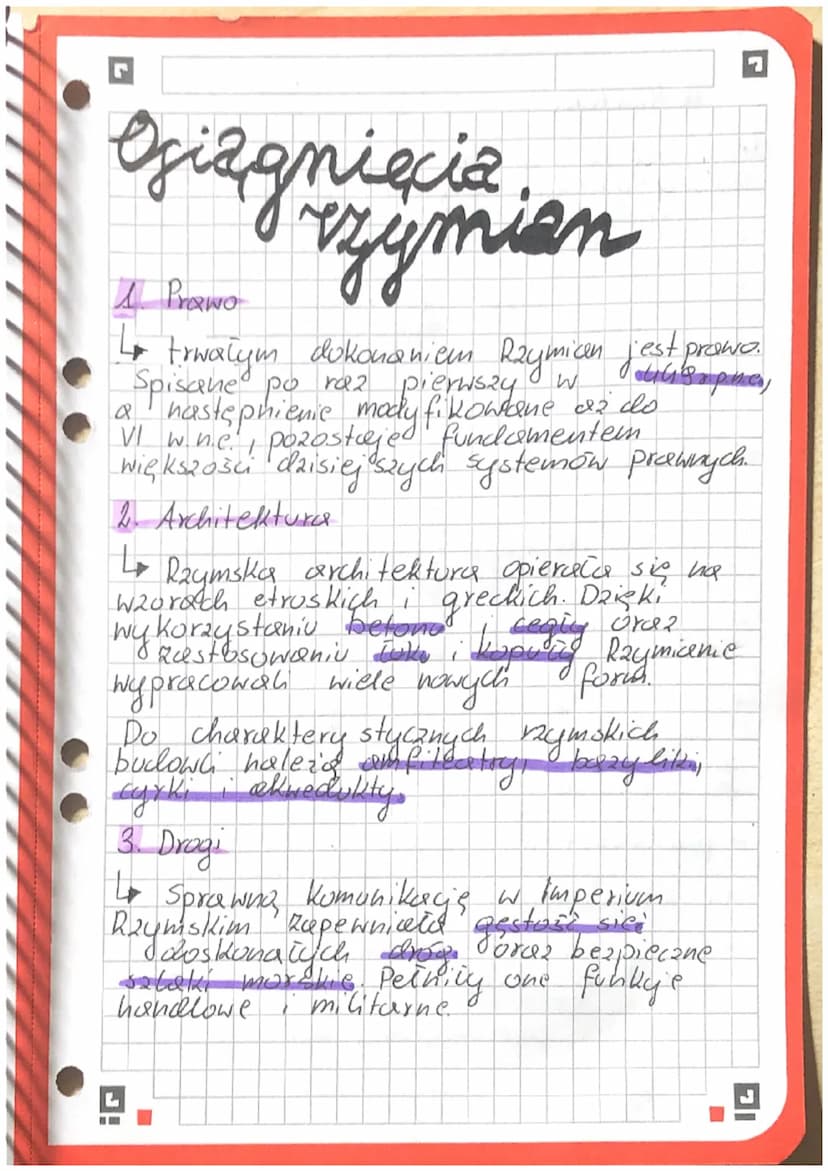 Osiągnięcia
rzymian
1. Prawo
↳ trwałym dokonaniem Rzymian jest prawo.
Spisane po raz pierwszy w 449r.p.n.e,
a następnienie modyfikowane aż do
VI w.n.e., pozostaje fundamentem
większości dzisiejszych systemów prawnych.
2. Architektura
↳ Rzymska architektura opierała się na
wzorach etruskich i greckich. Dzięki
wykorzystaniu betonu i cegły oraz
zastosowaniu łuku i kopuły Rzymianie
wypracowali wiele nowych form.
Do charakterystycznych rzymskich
budowli należą amfiteatry, bazyliki,
cyrki i akwedukty.
3. Drogi
↳ Sprawną komunikację w Imperium
Rzymskim zapewniała gęstość sieć
doskonałych dróg oraz bezpieczne
szlaki morskie. Pełniły one funkje
handlowe i militarne.